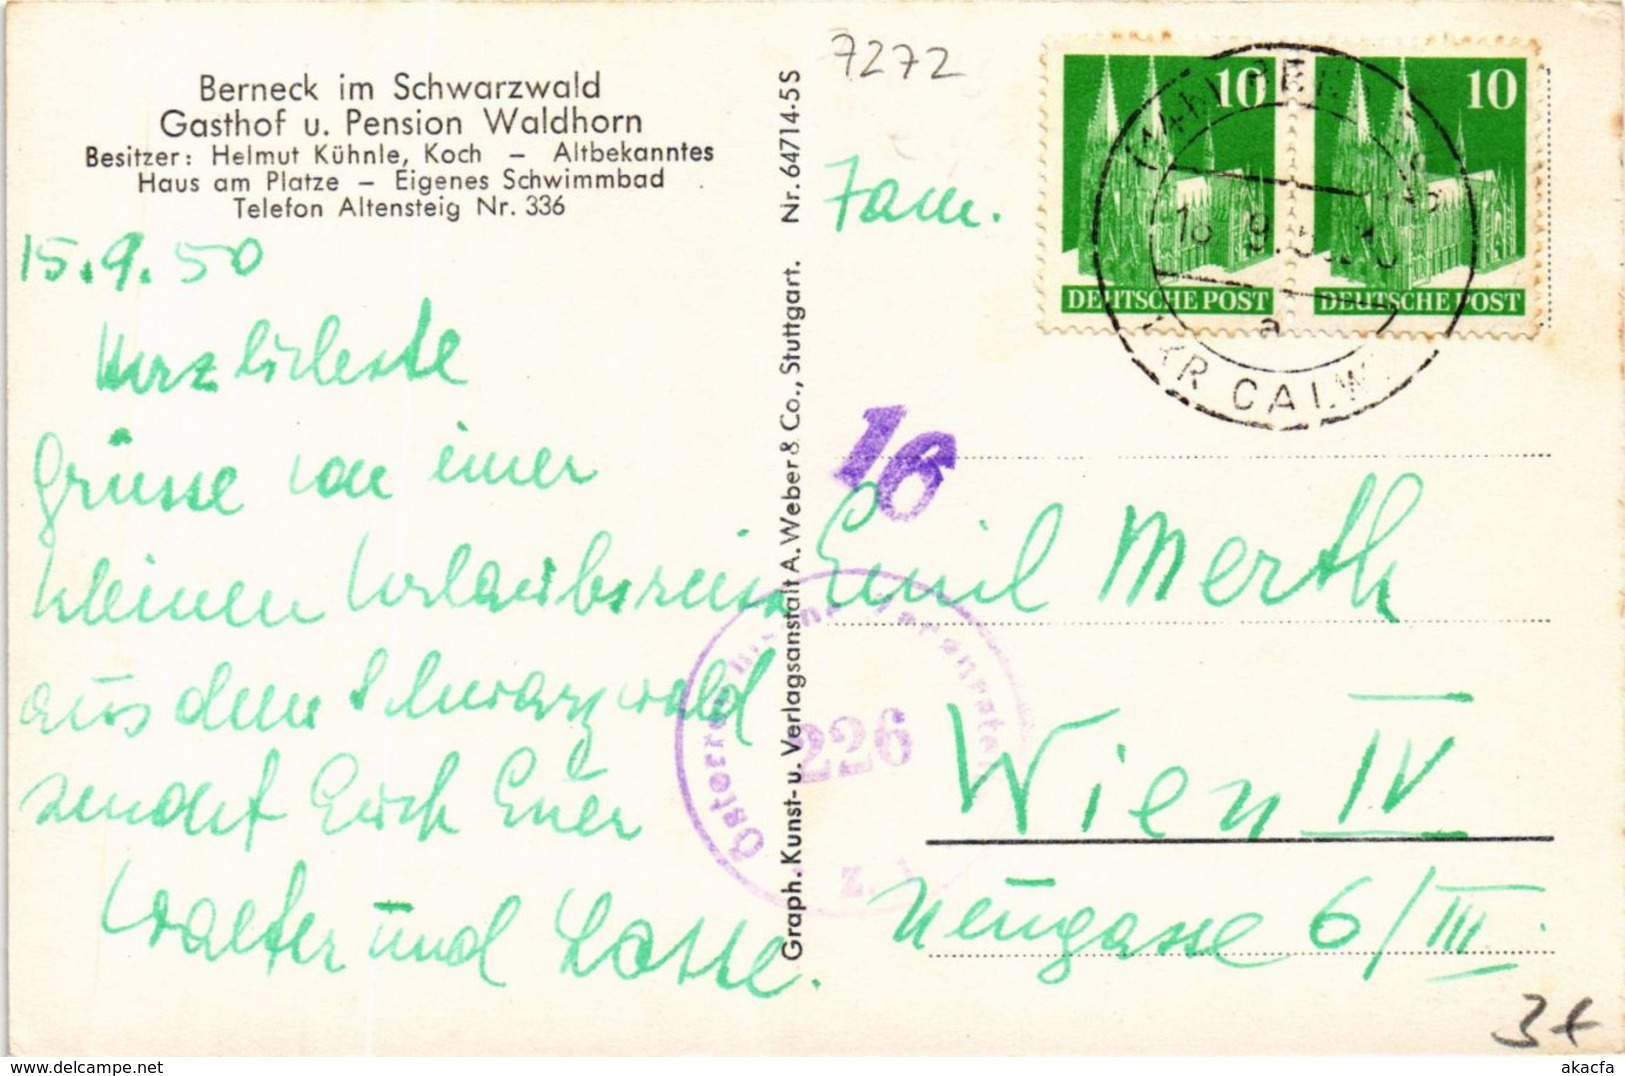 Berneck im Schwarzwald
Gasthof u. Pension Waldhorn
Besitzer: Helmut Kühnle, Koch – Altbekanntes
Haus am Platze – Eigenes Schwimmbad
Telefon Altensteig Nr. 336
15.9.50
Herzlichste
Grüsse von einer
kleinen Urlaubsreise
aus dem Schwarzwald
sendet Euch Euer
Walter und Lotte.
Graph. Kunst- u. Verlagsanstalt A. Weber & Co., Stuttgart. Nr. 64714-5S
7272
10
DEUTSCHE POST
10
DEUTSCHE POST
KR CALW
a
Fam.
16
Emil Merth
226
Wien IV
Neugasse 6/III.
3+
www.delcampe.net
akacfa